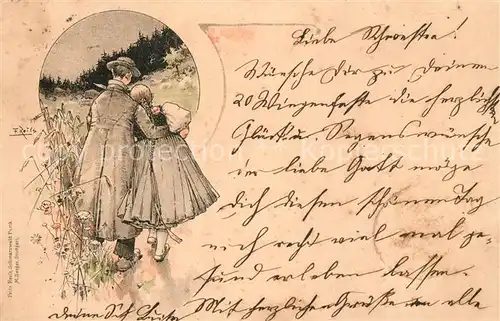 Liebe Schwester!
Wünsche Dir zu Deinem
20 Wiegenfeste die herzlichsten
Glück u. Segenswünsche
der liebe Gott möge
Dich diesen schönen Tag
noch recht viel mal ge-
sund erleben lassen.
Mit herzlichen Grüße an alle
Deine Sch. Luise
F. Reiss